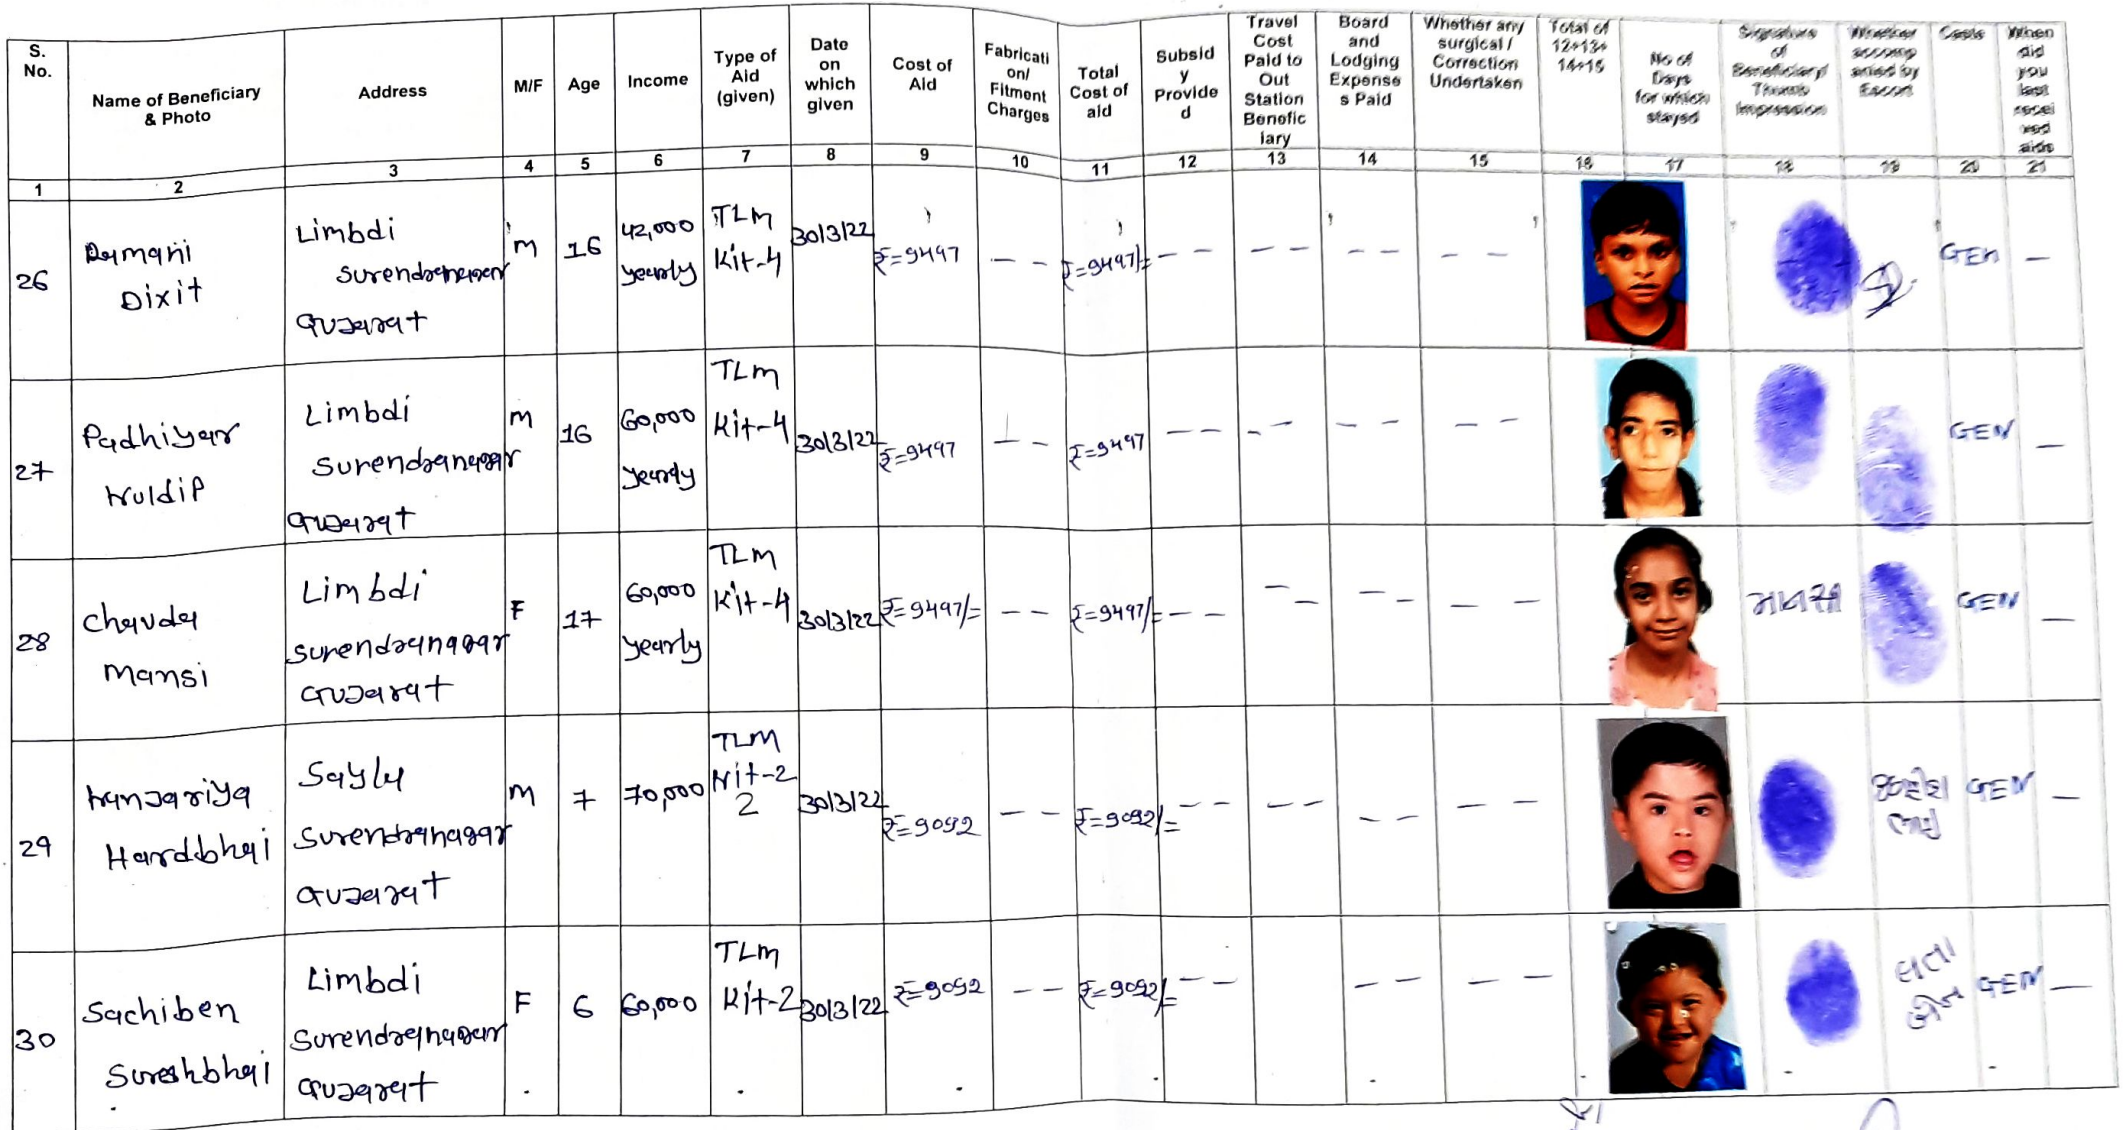 S. No.
Name of Beneficiary & Photo
Address
M/F
Age
Income
Type of Aid (given)
Date on which given
Cost of Aid
Fabricati on/ Fitment Charges
Total Cost of aid
Subsid y Provide d
Travel Cost Paid to Out Station Benefic iary
Board and Lodging Expense s Paid
Whether any surgical / Correction Undertaken
Total of 12+13+ 14+15
No of Days for which stayed
Signature of Beneficiary/ Thumb Impression
Whether accomp anied by Escort
Caste
When did you last recei ved aids
1 2 3 4 5 6 7 8 9 10 11 12 13 14 15 16 17 18 19 20 21
26 Dixit Limbdi Surendranagar Gujarat M 16 42,000 yearly TLM Kit-4 30/3/22 ₹=9497 - - ₹=9497/= - - - - - - - - GEN -
27 Padhiyar Kuldip Limbdi Surendranagar Gujarat M 16 60,000 yearly TLM Kit-4 30/3/22 ₹=9497 - - ₹=9497 - - - - - - - - GEN -
28 Chavda Mansi Limbdi Surendranagar Gujarat F 17 60,000 yearly TLM Kit-4 30/3/22 ₹=9497/= - - ₹=9497/= - - - - - - - - GEN -
29 Kanjariya Limbdi Sayla Surendranagar Gujarat M 7 70,000 TLM Kit-2 2 30/3/22 ₹=9092 - - ₹=9092/= - - - - - - - - GEN -
30 Sachiben Sureshbhai Limbdi Surendranagar Gujarat F 6 60,000 TLM Kit-2 30/3/22 ₹=9092 - - ₹=9092/= - - - - - - GEN -